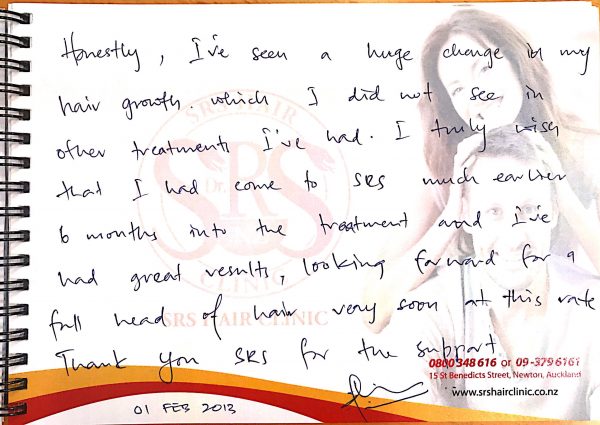 Honestly, I've seen a huge change in my
hair growth. which I did not see in
other treatments I've had. I truly wish
that I had come to SRS much earlier
6 months into the treatment and I've
had great results, looking forward for a
full head of hair very soon at this rate
Thank you SRS for the support
SRS HAIR
Dr.
SRS
CLINIC
SRS HAIR CLINIC
0800 348 616 or 09-379 6161
15 St Benedicts Street, Newton, Auckland
www.srshairclinic.co.nz
01 FEB 2013